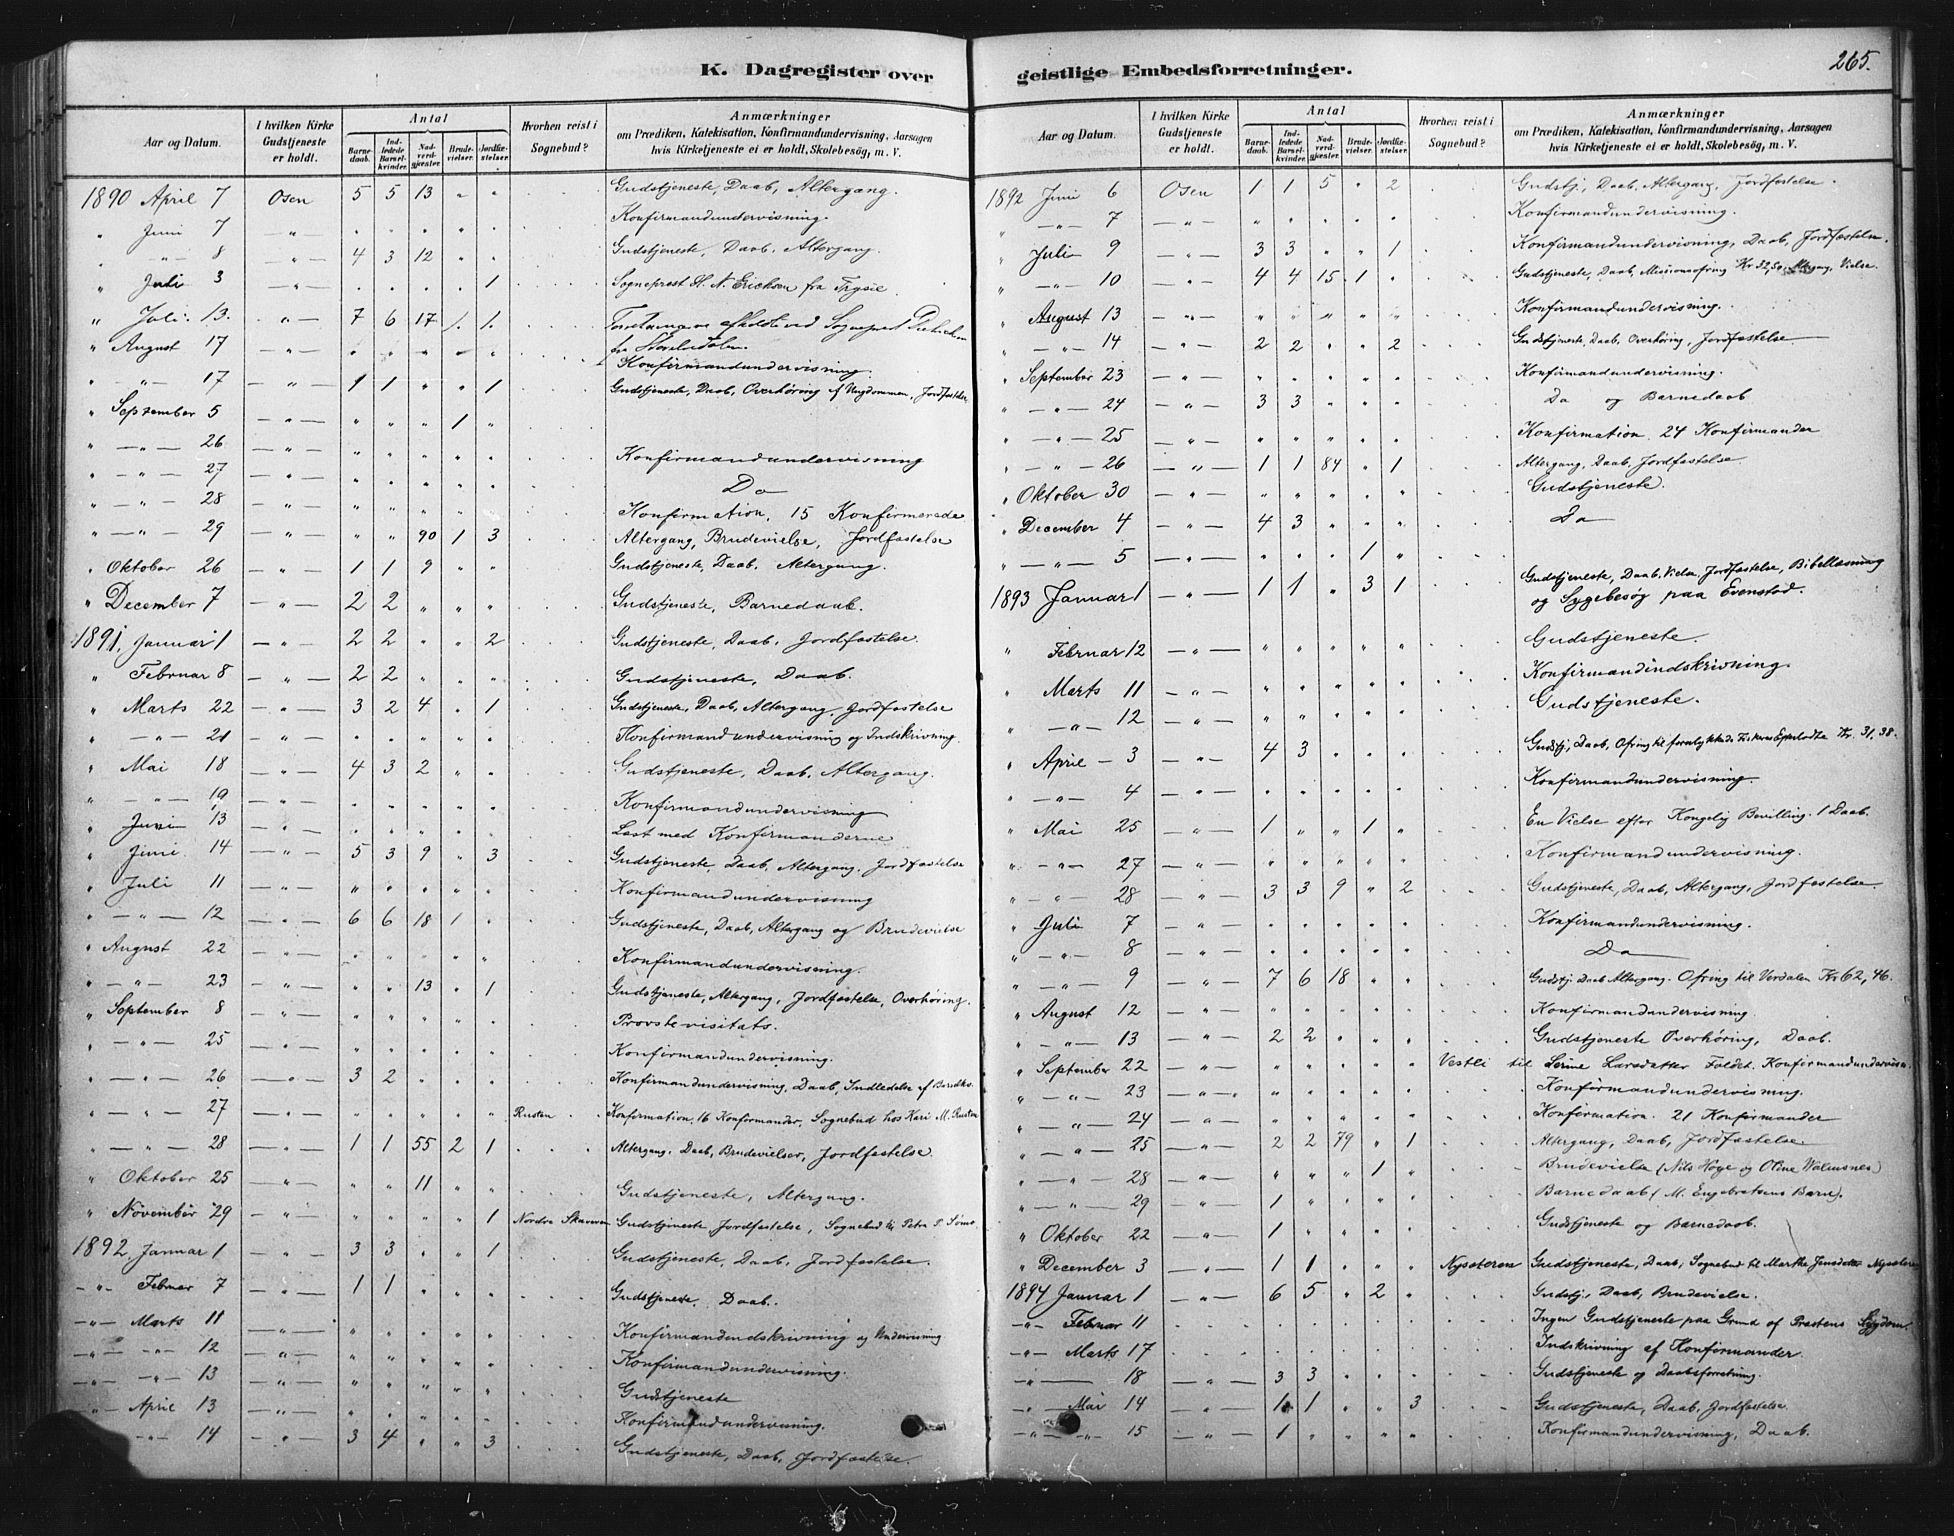 K. Dagregister over
Aar og Datum. I hvilken Kirke Gudstjeneste er holdt. Antal Barnedaab. Indledede Barselkvinder. Nadverdgjester. Brudevielser. Jordfæstelser. Hvorhen reist i Sognebud? Anmærkninger om Prædiken, Katekisation, Konfirmandundervisning, Aarsagen hvis Kirketjeneste ei er holdt, Skolebesøg, m. V.
1890 April 7 Osen 5 5 13 " " Gudstjeneste, Daab, Altergang.
" Juni 7 — " — " " " " " Konfirmandundervisning.
" — " — 8 — " — 4 3 12 " " Gudstjeneste, Daab, Altergang.
" Juli 3 — " — " " " " 1 Sogneprest H. N. Ericksen fra Trysil.
" Juli 13. — " — 7 6 17 1. 1. afholdt ved Sogneprest
fra Storelvdalen.
" August 17 — " — " " " " " Konfirmandundervisning.
" — " — 17 — " — 1 1 " " 1 Gudstjeneste, Daab, Overhøring af Ungdommen, Jordfæstelse
" September 5 — " — " " " 1 "
" — " — 26 — " — " " " " " Konfirmandundervisning
" — " — 27 — " — " " " " " Do
" — " — 28 — " — " " " " " Konfirmation, 15 Konfirmerede
" — " — 29 — " — " " 90 1 3 Altergang, Brudevielse, Jordfæstelse
" Oktober 26 — " — 1 1 9 " " Gudstjeneste, Daab, Altergang.
" December 7 — " — 2 2 " " " Gudstjeneste, Barnedaab.
1891. Januar 1 — " — 2 2 " " 2 Gudstjeneste, Daab, Jordfastelse.
" Februar 8 — " — 2 2 " " " Gudstjeneste, Daab.
" Marts 22 — " — 3 2 4 " 1 Gudstjeneste, Daab, Altergang, Jordfastelse
" — " — 21 — " — " " " " " Konfirmandundervisning og Indskrivning.
" Mai 18 — " — 4 3 2 " " Gudstjeneste, Daab, Altergang.
" — " — 19 — " — " " " " " Konfirmandundervisning
" Juni 13 — " — " " " " " Læst med Konfirmanderne
" Juni 14 — " — 5 3 9 " 3 Gudstjeneste, Daab, Altergang, Jordfastelse
" Juli 11 — " — " " " " " Konfirmandundervisning
" — " — 12 — " — 6 6 18 1 " Gudstjeneste, Daab, Altergang og Brudevielse
" August 22 — " — " " " " " Konfirmandundervisning.
" — " — 23 — " — " " 13 " 1 Gudstjeneste, Altergang, Jordfastelse, Overhøring.
" September 8 — " — " " " " " Provstevisitats.
" — " — 25 — " — " " " " " Konfirmandundervisning.
" — " — 26 — " — 3 2 " " " Konfirmandundervisning, Daab, Indledelse af Barselkv.
" — " — 27 — " — " " " " " Rusten Konfirmation, 16 Konfirmander, Sognebud hos Kari M. Rusten
" — " — 28 — " — 1 1 55 2 1 Altergang, Daab, Brudevielser, Jordfastelse.
" Oktober 25 — " — " " 11 " " Gudstjeneste, Altergang.
" November 29 — " — " " " " 1 Nordre Gudstjeneste Jordfastelse, Sognebud til
1892. Januar 1 — " — 3 3 " " 1 Gudstjeneste, Daab, Jordfastelse.
— " — Februar 7 — " — 1 1 " " " Gudstjeneste, Daab.
— " — Marts 11 — " — " " " " " Konfirmandindskrivning og Undervisning
— " — — " — 12 — " — " " " " " Konfirmandundervisning.
— " — — " — 13 — " — " " " " " Gudstjeneste
— " — April 13 — " — " " " " " Konfirmandundervisning.
— " — 14 — " — 3 4 " " 3 Gudstjeneste, Daab, Jordfæstelse.
geistlige Embedsforretninger.
265.
Aar og Datum. I hvilken Kirke Gudstjeneste er holdt. Antal Barnedaab. Indledede Barselkvinder. Nadverdgjester. Brudevielser. Jordfæstelser. Hvorhen reist i Sognebud? Anmærkninger om Prædiken, Katekisation, Konfirmandundervisning, Aarsagen hvis Kirketjeneste ei er holdt, Skolebesøg, m. V.
1892 Juni 6 Osen 1 1 5 " 2 Gudstj., Daab, Altergang, Jordfastelse.
" — " — 7 — " — " " " " " Konfirmandundervisning.
" Juli 9 — " — 3 3 " " 1 Konfirmandundervisning, Daab, Jordfæstelse.
" — " — 10 — " — 4 4 15 1 " Gudstjeneste, Daab, Missionsofring Kr 32,50, Altergang, Vielse.
" August 13 — " — " " " " " Konfirmandundervisning.
" — " — 14 — " — 2 2 " " 2 Gudstjeneste, Daab, Overhøring, Jordfastelse
" September 23 — " — " " " " " Konfirmandundervisning.
" — " — 24 — " — 3 3 " " " Do og Barnedaab
" — " — 25 — " — " " " " " Konfirmation. 24 Konfirmander
" — " — 26 — " — 1 1 84 " 1 Altergang, Daab, Jordfastelse.
" Oktober 30 — " — " " " " " Gudstjeneste.
" December 4 — " — 4 3 " " " Do
" — " — 5 — " — " " " 1 "
1893 Januar 1 — " — 1 1 " 3 1 Gudstjeneste, Daab, Vielse, Jordfastelse, Bibellæsning
og Sygebesøg paa Evenstad.
" Februar 12 — " — " " " " " Gudstjeneste.
" Marts 11 — " — " " " " " Konfirmandindskrivning.
" — " — 12 — " — " " " " " Gudstjeneste.
" April — 3 — " — 4 3 " " " Gudstj, Daab, Ofring til forulykkede Kr. 31,38.
" — " — 4 — " — " " " " " Konfirmandundervisning.
" Mai 25 — " — 1 " " 1 " En Vielse efter Kongelig Bevilling. 1 Daab.
" — " — 27 — " — " " " " " Konfirmandundervisning.
" — " — 28 — " — 3 3 9 " 2 Gudstjeneste, Daab, Altergang, Jordfastelse.
" Juli 7 — " — " " " " " Konfirmandundervisning.
" — " — 8 — " — " " " " " Do
" — " — 9 — " — 7 6 18 " " Gudstj. Daab Altergang. Ofring til Verdalen Kr 62,46.
" August 12 — " — " " " " " Konfirmandundervisning
" — " — 13 — " — 2 2 " " " Gudstjeneste Overhøring, Daab.
" September 22 — " — " " " " " Vestli til Lerine Larsdatter Foldet. Konfirmandundervisn.
" — " — 23 — " — " " " " " Konfirmandundervisning.
" — " — 24 — " — " " " " " Konfirmation. 21 Konfirmander
" — " — 25 — " — 2 2 79 " 1 Altergang, Daab, Jordfastelse
" — " — 28 — " — " " " 1 " Brudevielse (Nils Høge og Oline Valmsnes)
" — " — 29 — " — 1 " " " " Barnedaab (M. Engebretsens Barn).
" Oktober 22 — " — 1 " " " " Gudstjeneste og Barnedaab.
" December 3 — " — 1 1 " " " Nysæteren Gudstjeneste, Daab, Sognebud til Marthe Jensdatter
1894 Januar 1 — " — 6 5 " 2 " Gudstj., Daab, Brudevielse.
— " — Februar 11 — " — " " " " " Ingen Gudstjeneste paa Grund af Præstens Sygdom.
— " — Marts 17 Indskrivning af Konfirmander.
— " — — 18 — " — 3 3 " " " Gudstjeneste og Daabsforretning.
— " — Mai 14 — " — 1 1 " " 3 Gudstjeneste, Daab, Jordfastelse.
— " — — " — 15 — " — 1 " " " " Konfirmandundervisning, Daab.